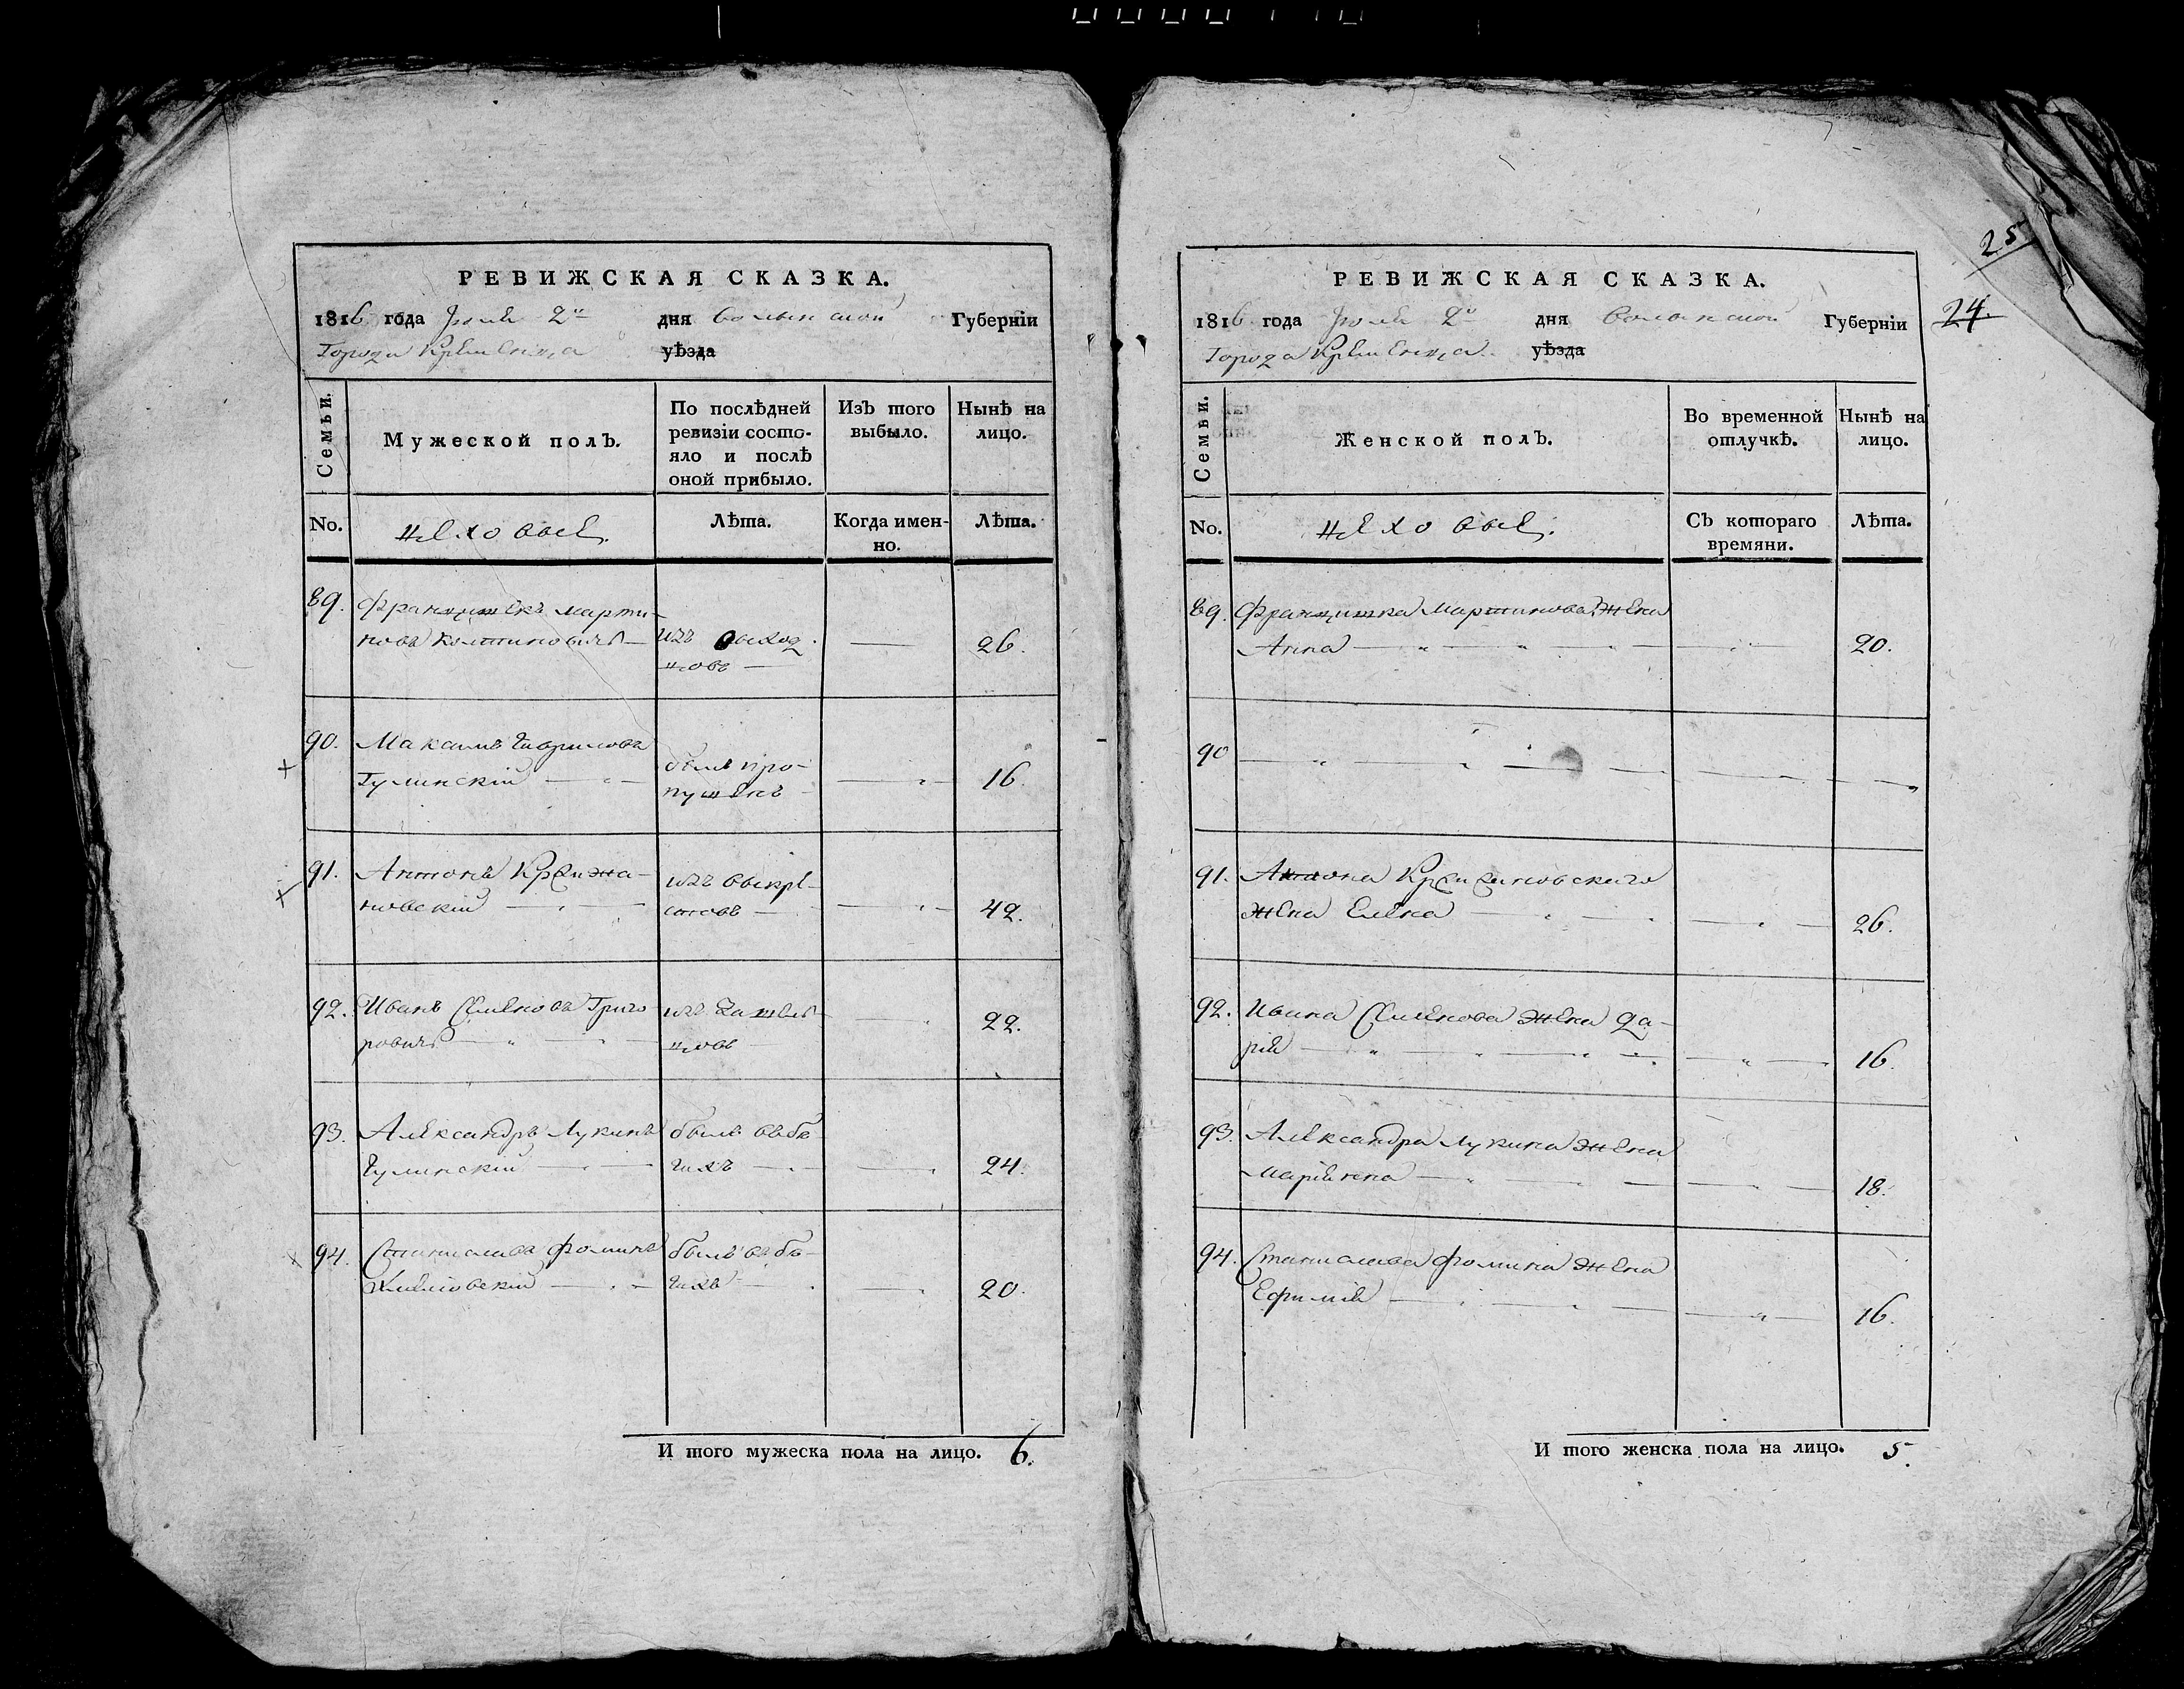 РЕВИЖСКАЯ СКАЗКА.
1816 года Июля 2го дня Волынской Губерніи
Города Кременца уѣзда
Семьи.
Мужеской полъ.
По послѣдней ревизіи состо-
яло и послѣ
оной прибыло.
Изъ того выбыло.
Нынѣ на лицо.
No.
цеховые.
Лѣта.
Когда имен-
но.
Лѣта.
89. Францишекъ Марти-
новъ изъ выход
цовъ 26.
90. Максимъ Гавриловъ
Гулинскій былъ про-
пущенъ 16.
91. Антонъ Крыжа-
новскій изъ выкре-
стовъ 42.
92. Иванъ Семеновъ Григо
ровичъ изъ
цовъ 22.
93. Александръ Лукинъ былъ въ бѣ
гахъ 24.
94. Станиславъ Фоминъ былъ въ бѣ-
гахъ 20.
И того мужеска пола на лицо. 6.
25
24.
РЕВИЖСКАЯ СКАЗКА.
1816 года Июля 2го дня Волынской Губерніи
Города Кременца уѣзда
Семьи.
Женской полъ.
Во временной
отлучкѣ.
Нынѣ на
лицо.
No.
цеховые.
Съ котораго
времяни.
Лѣта.
89. Францишка Мартинова жена
Анна 20.
90
91. Антона
жена Елена 26.
92. Ивана Семенова жена Да-
рія 16.
93. Александра Лукина жена
Маріянна 18.
94. Станислава Фомина жена
Ефимія 16.
И того женска пола на лицо. 5.